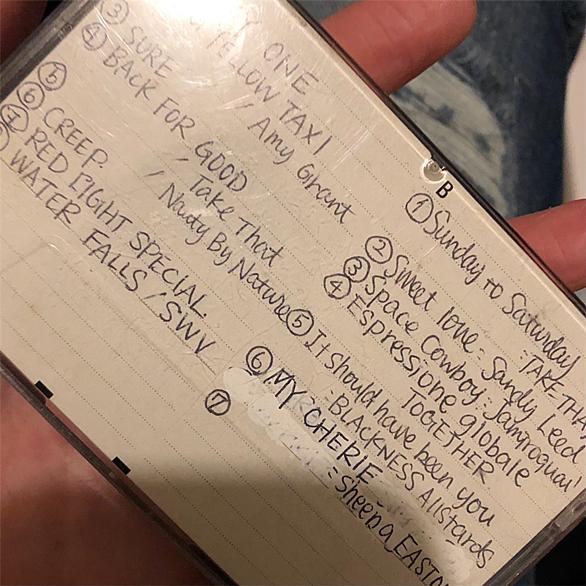 ONE
YELLOW TAXI
/ Amy Grant
③ SURE
④ BACK FOR GOOD
/ Take That
⑤
/ Naughty By Nature
⑥ CREEP
⑦ RED LIGHT SPECIAL
WATER FALLS / SWV
B
① Sunday to Saturday
② Sweet love - Sandy Leed
③ Space Cowboy - Jamiroquai
④ Espressione globale
TOGETHER
- TAKE THA
⑤ It should have been you
- BLACKNESS Allstards
⑥ MY CHERIE
- Sheena EASTON
⑦